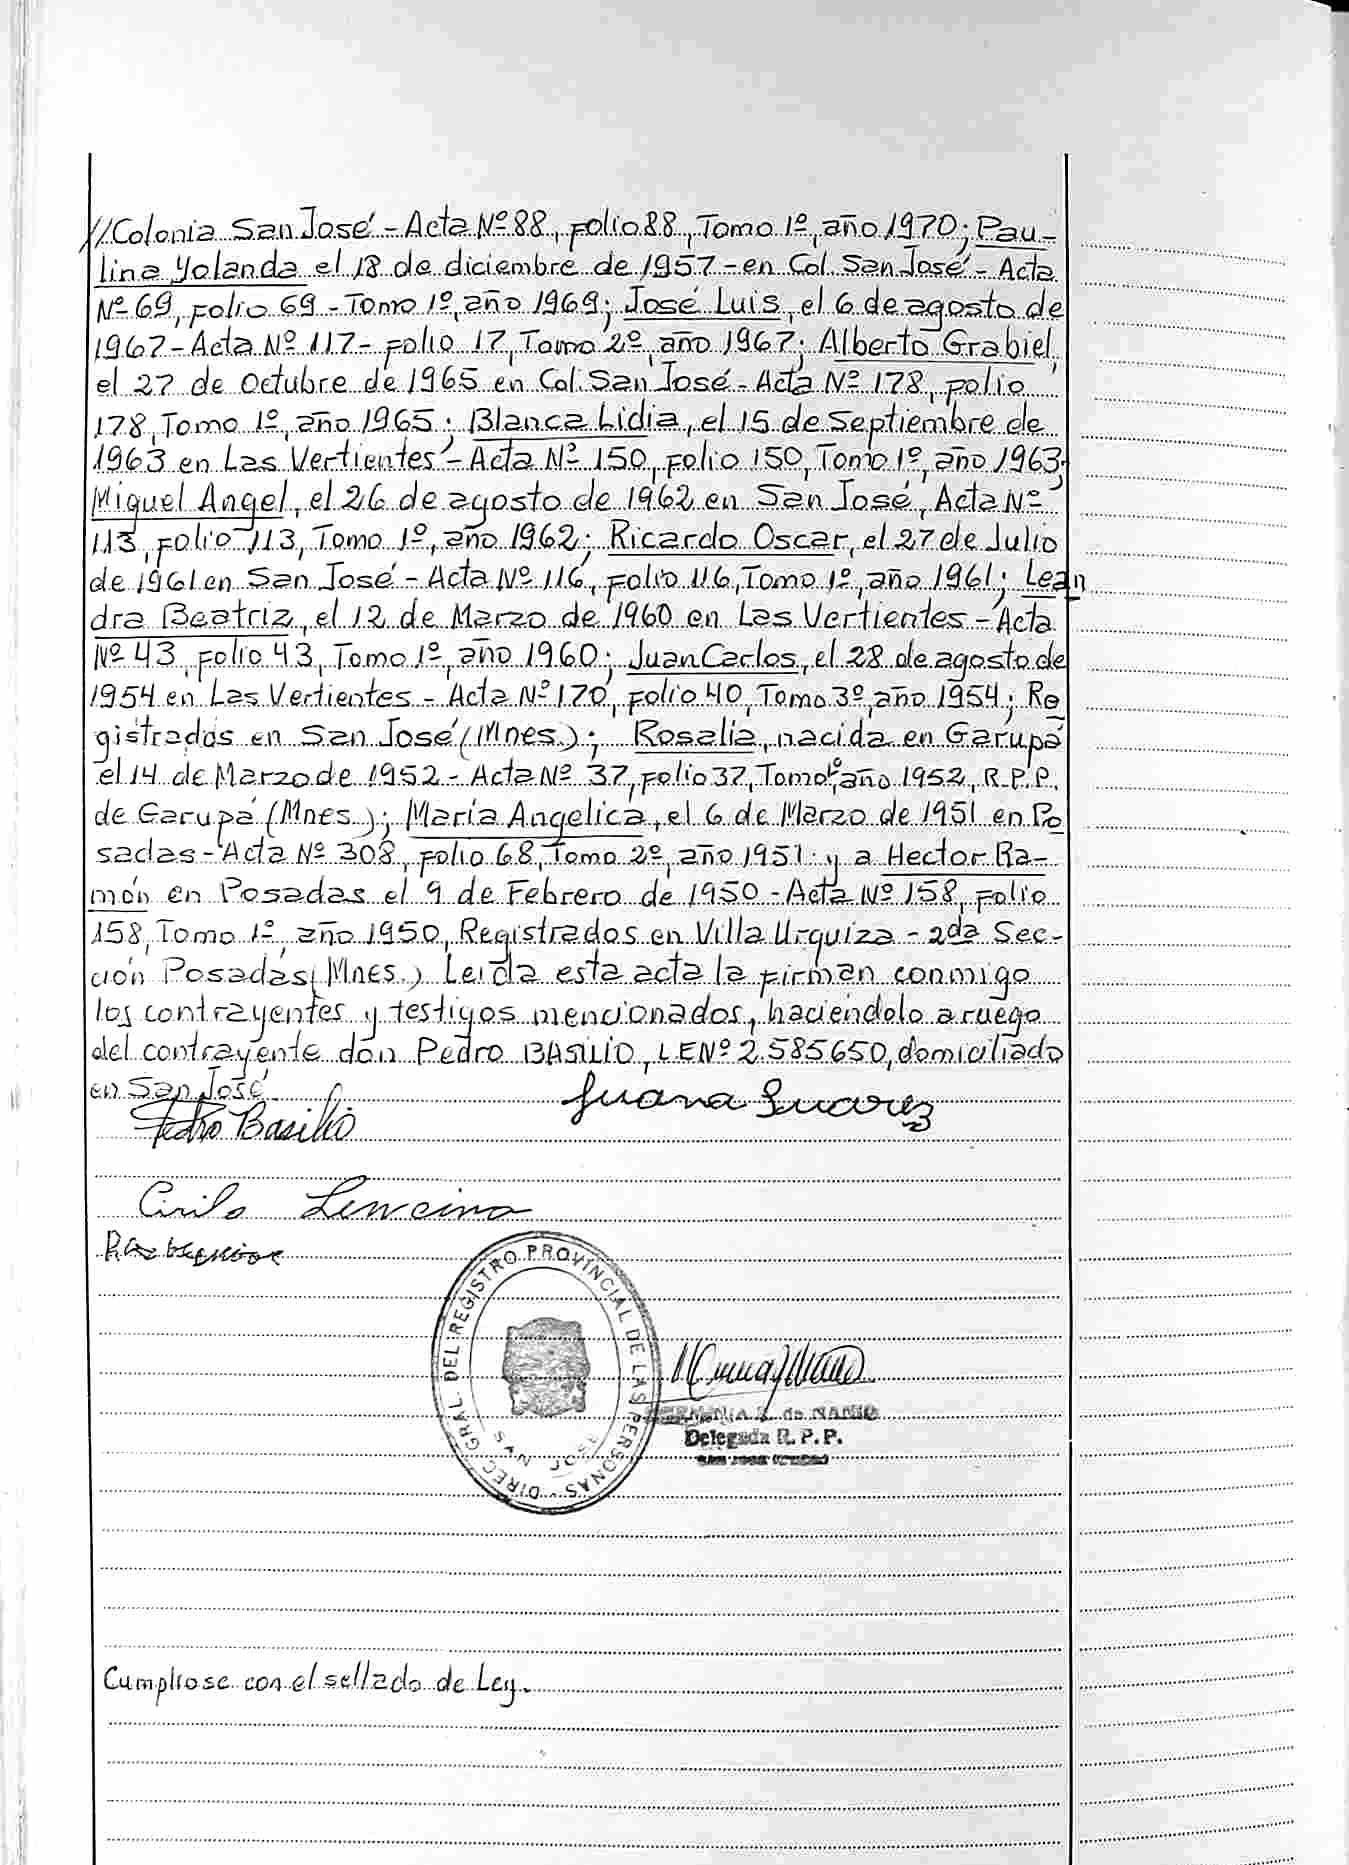 //Colonia San José - Acta Nº 88, folio 88, Tomo 1º, año 1970; Pau-
lina Yolanda el 18 de diciembre de 1957 - en Col. San José - Acta
Nº 69, folio 69 - Tomo 1º, año 1969; José Luis, el 6 de agosto de
1967 - Acta Nº 117 - folio 17, Tomo 2º, año 1967; Alberto Grabiel,
el 27 de Octubre de 1965 en Col. San José - Acta Nº 178, folio
178, Tomo 1º, año 1965; Blanca Lidia, el 15 de Septiembre de
1963 en Las Vertientes - Acta Nº 150, folio 150, Tomo 1º, año 1963;
Miguel Angel, el 26 de agosto de 1962 en San José, Acta Nº
113, folio 113, Tomo 1º, año 1962; Ricardo Oscar, el 27 de Julio
de 1961 en San José - Acta Nº 116, folio 116, Tomo 1º, año 1961; Lean
dra Beatriz, el 12 de Marzo de 1960 en Las Vertientes - Acta
Nº 43, folio 43, Tomo 1º, año 1960; Juan Carlos, el 28 de agosto de
1954 en Las Vertientes - Acta Nº 170, folio 40, Tomo 3º, año 1954; Re
gistrados en San José (Mnes.); Rosalia, nacida en Garupá
el 14 de Marzo de 1952 - Acta Nº 37, folio 37, Tomo 1º, año 1952, R.P.P.
de Garupá (Mnes.); María Angelica, el 6 de Marzo de 1951 en Po
sadas - Acta Nº 308, folio 68, Tomo 2º, año 1951 y a Hector Ra-
món en Posadas el 9 de Febrero de 1950 - Acta Nº 158, folio
158, Tomo 1º, año 1950, Registrados en Villa Urquiza - 2da Sec-
ción Posadas (Mnes.) Leida esta acta la firman conmigo
los contrayentes y testigos mencionados, haciendolo a ruego
del contrayente don Pedro BASILIO, LE Nº 2.585650, domiciliado
en San José.
Pedro Basilio
Juana Suarez
Cirilo Lencina
DIREC. GRAL. DEL REGISTRO PROVINCIAL DE LAS PERSONAS - SAN JOSE
de
Delegada R. P. P.
SAN JOSE
Cumpliose con el sellado de Ley.